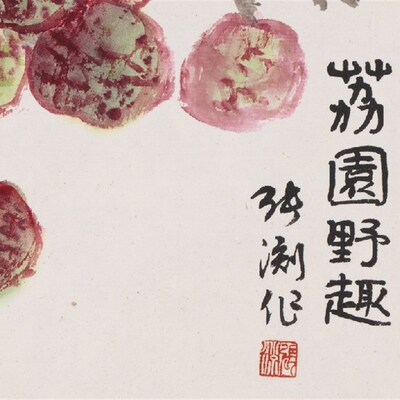 荔園野趣
张渊作